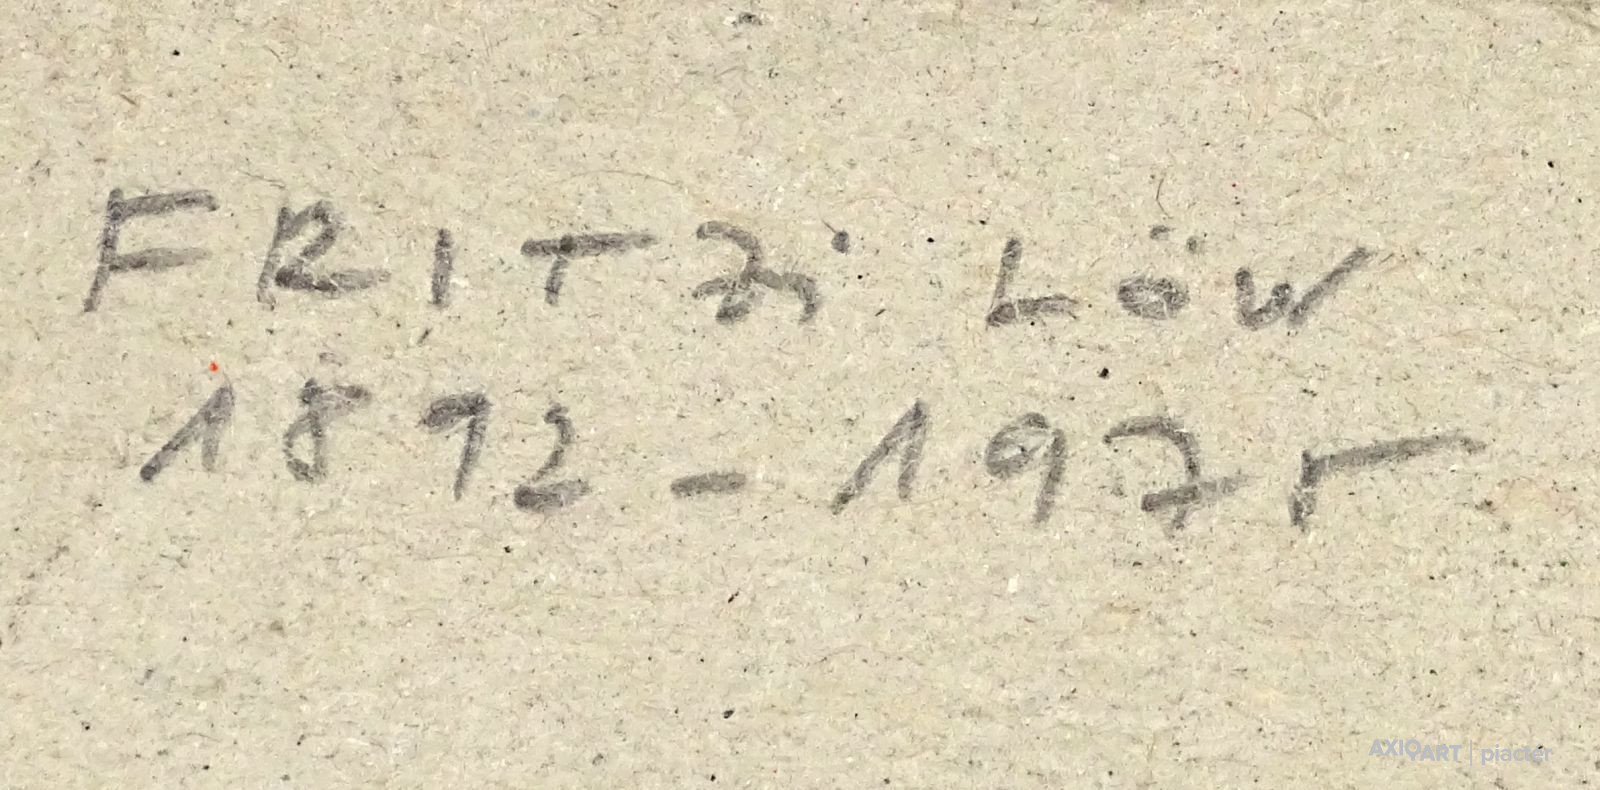 FRITZi LÖW
1892 - 1975
AXIOART | piacter